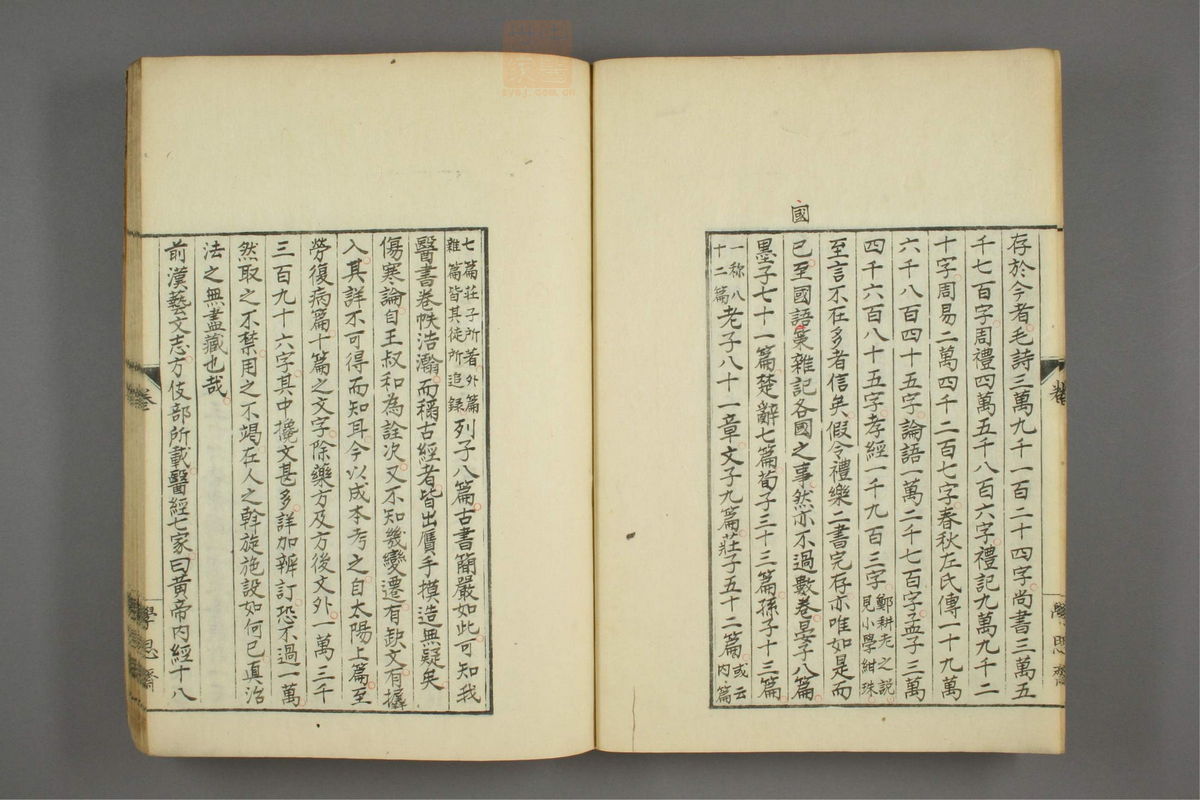 國
存於今者毛詩三萬九千一百二十四字尚書三萬五
千七百字周禮四萬五千八百六字禮記九萬九千二
十字周易二萬四千二百七字春秋左氏傳一十九萬
六千八百四十五字論語一萬二千七百字孟子三萬
四千六百八十五字孝經一千九百三字鄭耕老之說見小學紺珠
至言不在多者信矣假令禮樂二書完存亦唯如是而
已至國語策雜記各國之事然亦不過數卷晏子八篇
墨子七十一篇楚辭七篇荀子三十三篇孫子十三篇
一称八十二篇老子八十一章文子九篇莊子五十二篇或云內篇
七篇莊子所著外篇雜篇皆其徒所追錄列子八篇古書簡嚴如此可知我
醫書卷帙浩瀚而稱古經者皆出贋手摸造無疑矣
傷寒論自王叔和為詮次又不知幾變遷有缺文有攙
入其詳不可得而知耳今以成本考之自太陽上篇至
勞復病篇十篇之文字除藥方及方後文外一萬三千
三百九十六字其中攙文甚多詳加辨訂恐不過一萬
然取之不禁用之不竭在人之斡旋施設如何已真治
法之無盡藏也哉
前漢藝文志方伎部所載醫經七家曰黃帝內經十八
卷
學思齋